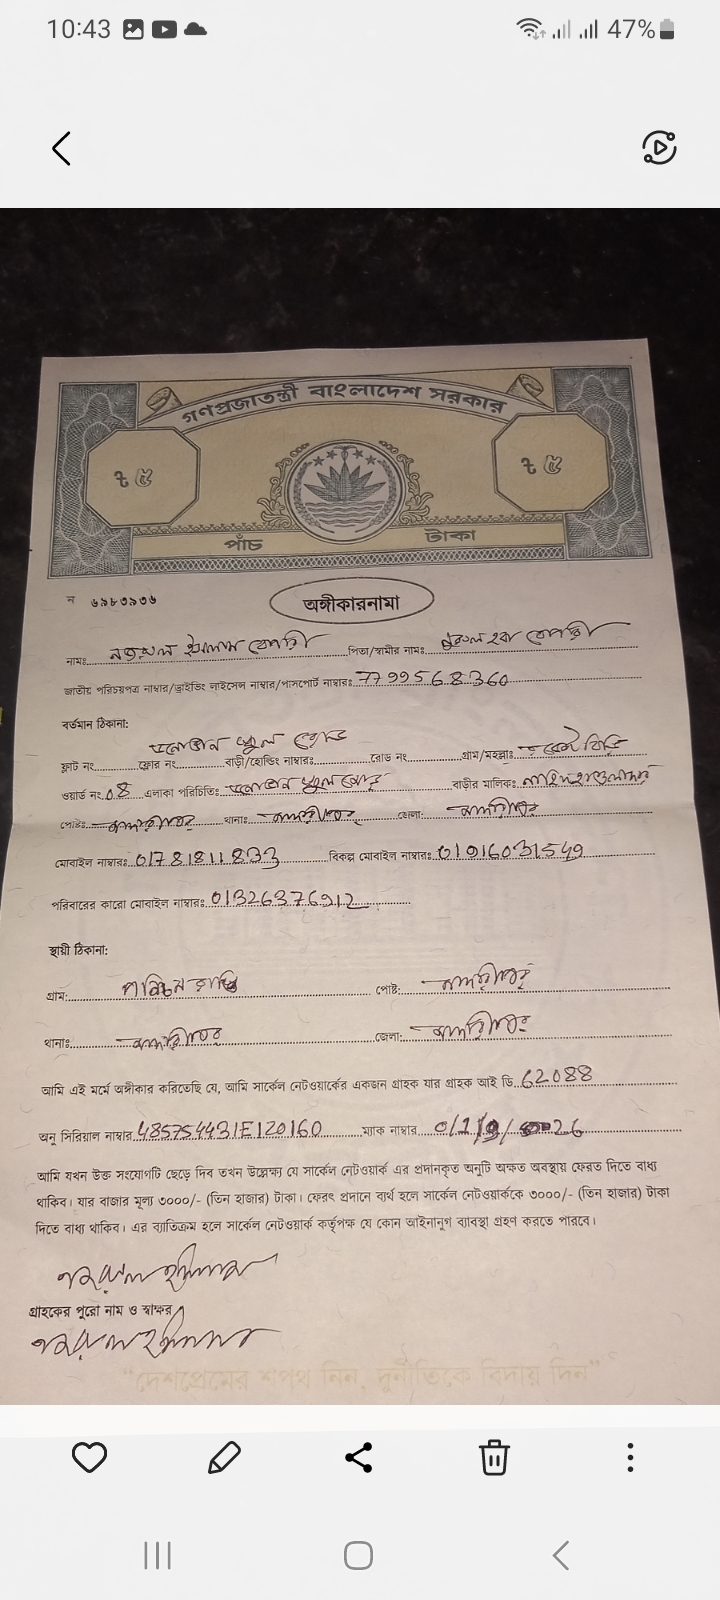 10:43
47%
গণপ্রজাতন্ত্রী বাংলাদেশ সরকার
৳ ৫
৳ ৫
পাঁচ টাকা
ন ৬৯৮৩৯৩৬
অঙ্গীকারনামা
নামঃ পিতা/স্বামীর নামঃ
জাতীয় পরিচয়পত্র নাম্বার/ড্রাইভিং লাইসেন্স নাম্বার/পাসপোর্ট নাম্বারঃ 7799568360
বর্তমান ঠিকানা:
ফ্লাট নং ফ্লোর নং বাড়ী/হোল্ডিং নাম্বারঃ রোড নং গ্রাম/মহল্লাঃ
ওয়ার্ড নং 08 এলাকা পরিচিতিঃ বাড়ীর মালিকঃ
পোষ্টঃ মাদারীপুর থানাঃ মাদারীপুর জেলা: মাদারীপুর
মোবাইল নাম্বারঃ 01781811833 বিকল্প মোবাইল নাম্বারঃ 01916031549
পরিবারের কারো মোবাইল নাম্বারঃ 01326376912
স্থায়ী ঠিকানা:
গ্রাম: পোষ্ট: মাদারীপুর
থানাঃ মাদারীপুর জেলা: মাদারীপুর
আমি এই মর্মে অঙ্গীকার করিতেছি যে, আমি সার্কেল নেটওয়ার্কের একজন গ্রাহক যার গ্রাহক আই ডি 62088
অনু সিরিয়াল নাম্বার 485754431E120160 ম্যাক নাম্বার
আমি যখন উক্ত সংযোগটি ছেড়ে দিব তখন উল্লেক্ষ্য যে সার্কেল নেটওয়ার্ক এর প্রদানকৃত অনুটি অক্ষত অবস্থায় ফেরত দিতে বাধ্য
থাকিব। যার বাজার মূল্য ৩০০০/- (তিন হাজার) টাকা। ফেরৎ প্রদানে ব্যর্থ হলে সার্কেল নেটওয়ার্ককে ৩০০০/- (তিন হাজার) টাকা
দিতে বাধ্য থাকিব। এর ব্যাতিক্রম হলে সার্কেল নেটওয়ার্ক কর্তৃপক্ষ যে কোন আইনানুগ ব্যাবস্থা গ্রহণ করতে পারবে।
গ্রাহকের পুরো নাম ও স্বাক্ষর
"দেশপ্রেমের শপথ নিন, দুর্নীতিকে বিদায় দিন"